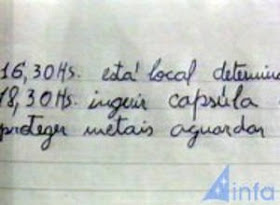 16,30 Hs. está local determina
18,30 Hs. ingerir capsúla
proteger metais aguardar
infa